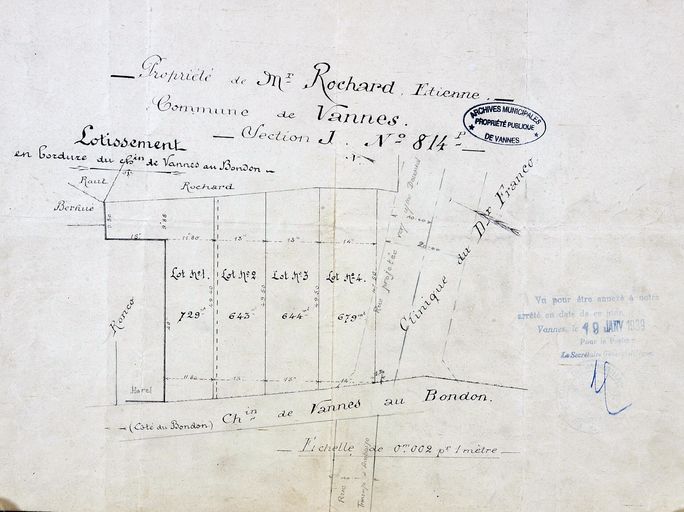 Propriété de Mr Rochard Etienne.
Commune de Vannes.
Section J. No 814p
ARCHIVES MUNICIPALES
PROPRIÉTÉ PUBLIQUE
DE VANNES
Lotissement
en bordure du chin de Vannes au Bondon
Raut
Rochard
Berhué
Ronco
Harel
18"
11.80
13"
13"
14"
Lot No1.
Lot No2
Lot No3
Lot No4.
729
643
644
679
11.80
13"
13"
14"
Rue projetée
Clinique du Dr Franco
Vu pour être annexé à notre
arrêté en date de ce jour
Vannes, le 19 JANV 1939
Le Secrétaire
(Côté du Bondon)
Chin de Vannes au Bondon.
Echelle de 0m002 pr 1 mètre
Rue